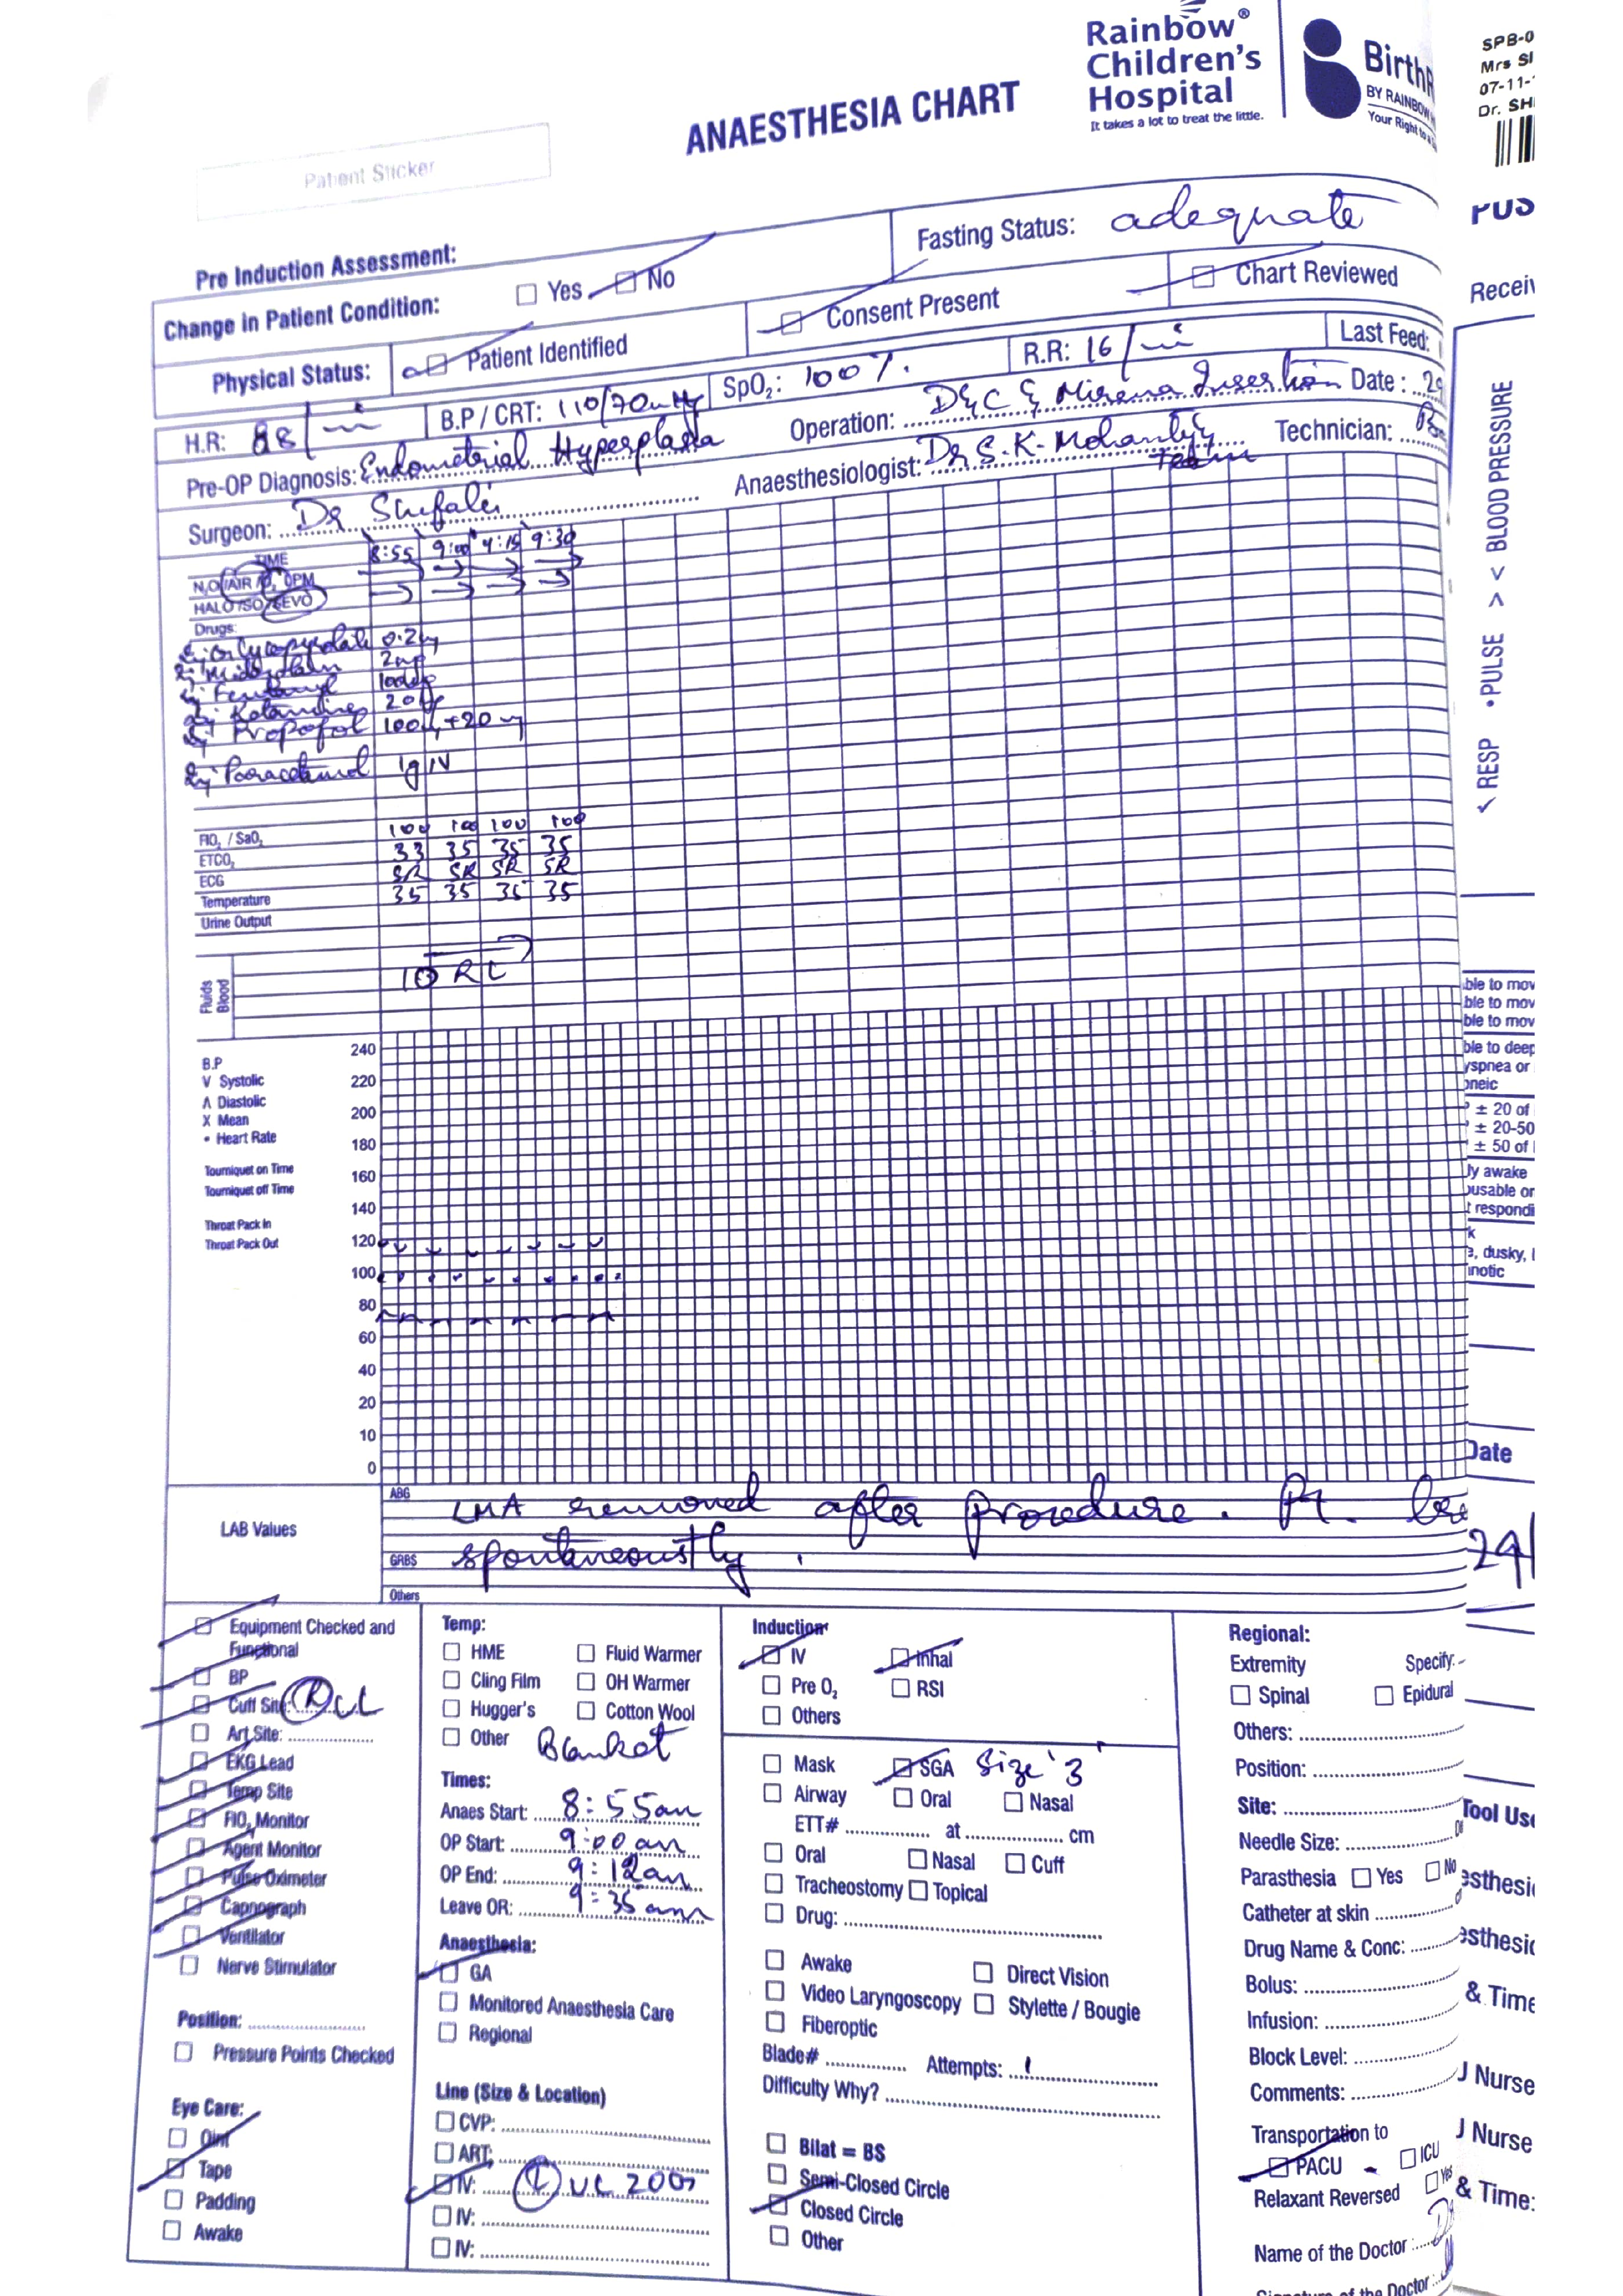 Rainbow®
Children's
Hospital
It takes a lot to treat the little.
BY RAINBOW
Your Right to a
SPB-0
Mrs
07-11-
Dr. SH
ANAESTHESIA CHART
Patient Sticker
Pre Induction Assessment:
Fasting Status: adequate
Change in Patient Condition: Yes No
Physical Status: Patient Identified Consent Present Chart Reviewed
H.R: 88/min B.P / CRT: 110/70mmHg SpO2: 100%. R.R: 16/min Last Feed:
Pre-OP Diagnosis: Endometrial Hyperplasia Operation: D&C & Mirena Insertion Date :
Surgeon: Dr Shefali Anaesthesiologist: Dr S.K. Mohanty & Team Technician:
TIME 8:55 9:00 9:15 9:30
N2O/AIR/O2 OPM
HALO/ISO/SEVO
Drugs:
Inj Glycopyrolate 0.2mg
Inj Midazolam 2mg
Inj Fentanyl
Inj Ketamine
Inj Propofol 100mg+20mg
Inj Paracetamol 1g IV
FIO2 / SaO2 100 100 100 100
ETCO2 33 35 35 35
ECG SR SR SR SR
Temperature 35 35 35 35
Urine Output
Fluids
Blood
RL
B.P
V Systolic
Λ Diastolic
X Mean
• Heart Rate
Tourniquet on Time
Tourniquet off Time
Throat Pack In
Throat Pack Out
240
220
200
180
160
140
120
100
80
60
40
20
10
0
LAB Values
ABG
LMA removed after procedure. Pt.
GRBS
spontaneously.
Others
Equipment Checked and
Functional
BP
Cuff Site: R UL
Art Site:
EKG Lead
Temp Site
FIO2 Monitor
Agent Monitor
Pulse Oximeter
Capnograph
Ventilator
Nerve Stimulator
Position:
Pressure Points Checked
Eye Care:
Oint
Tape
Padding
Awake
Temp:
HME Fluid Warmer
Cling Film OH Warmer
Hugger's Cotton Wool
Other Blanket
Times:
Anaes Start: 8:55am
OP Start: 9:00 am
OP End: 9:12am
Leave OR: 9:35 am
Anaesthesia:
GA
Monitored Anaesthesia Care
Regional
Line (Size & Location)
CVP:
ART:
IV: L UL 20G
IV:
IV:
Induction
IV Inhal
Pre O2 RSI
Others
Mask SGA Size '3'
Airway Oral Nasal
ETT# at cm
Oral Nasal Cuff
Tracheostomy Topical
Drug:
Awake Direct Vision
Video Laryngoscopy Stylette / Bougie
Fiberoptic
Blade# Attempts: 1
Difficulty Why?
Bilat = BS
Semi-Closed Circle
Closed Circle
Other
Regional:
Extremity Specify:
Spinal Epidural
Others:
Position:
Site:
Needle Size:
Parasthesia Yes No
Catheter at skin
Drug Name & Conc:
Bolus:
Infusion:
Block Level:
Comments:
Transportation to
PACU ICU
Relaxant Reversed Yes
Name of the Doctor :
of the Doctor :
✓ RESP • PULSE > < BLOOD PRESSURE
± 20 of
± 20-50
± 50 of
Date
24
Tool Use
& Time
Nurse
Nurse
& Time: